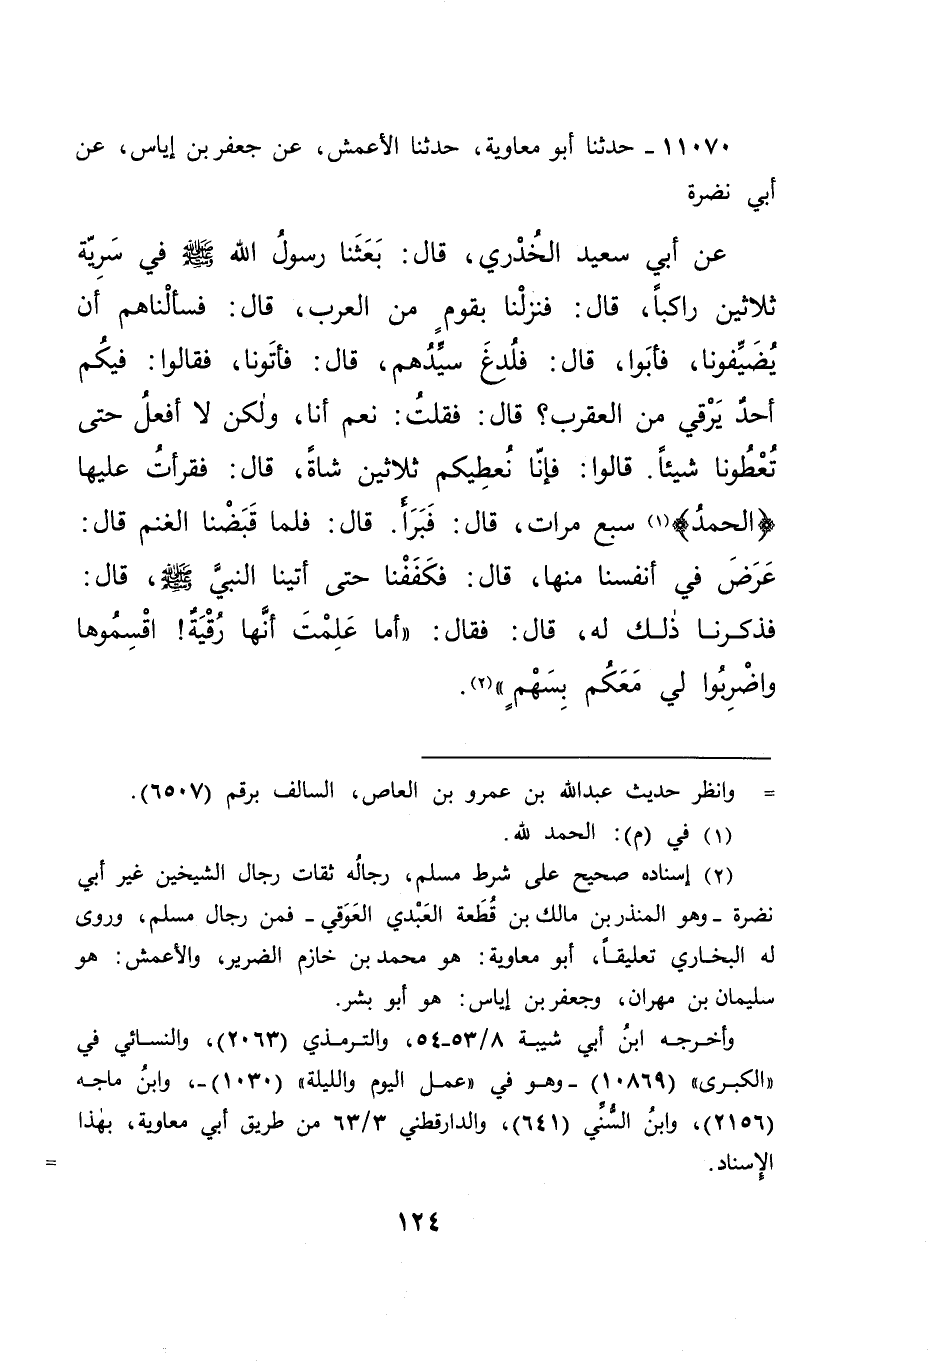 ١١٠٧٠ ـ حدثنا أبو معاوية، حدثنا الأعمش، عن جعفر بن إياس، عن
أبي نضرة
عن أبي سعيد الخُدْري، قال: بَعَثَنا رسولُ الله ﷺ في سَرِيّة
ثلاثين راكباً، قال: فنزلْنا بقومٍ من العرب، قال: فسألْناهم أن
يُضَيِّفونا، فأبَوا، قال: فلُدِغَ سيِّدُهم، قال: فأتَونا، فقالوا: فيكُم
أحدٌ يَرْقي من العقرب؟ قال: فقلتُ: نعم أنا، ولٰكن لا أفعلُ حتى
تُعْطُونا شيئاً. قالوا: فإنّا نُعطِيكم ثلاثين شاةً، قال: فقرأتُ عليها
﴿الحمدُ﴾(١) سبع مرات، قال: فَبَرَأَ. قال: فلما قَبَضْنا الغنم قال:
عَرَضَ في أنفسنا منها، قال: فكَفَفْنا حتى أتينا النبيَّ ﷺ، قال:
فذكـرنـا ذٰلـك له، قال: فقال: «أما عَلِمْتَ أنَّها رُقْيَةٌ! اقْسِمُوها
واضْرِبُوا لي مَعَكُم بِسَهْمٍ»(٢).
= وانظر حديث عبدالله بن عمرو بن العاص، السالف برقم (٦٥٠٧).
(١) في (م): الحمد لله.
(٢) إسناده صحيح على شرط مسلم، رجالُه ثقات رجال الشيخين غير أبي
نضرة ـ وهو المنذر بن مالك بن قُطَعة العَبْدي العَوَقي ـ فمن رجال مسلم، وروى
له البخـاري تعليقـاً، أبو معاوية: هو محمد بن خازم الضرير، والأعمش: هو
سليمان بن مهران، وجعفر بن إياس: هو أبو بشر.
وأخـرجـه ابنُ أبي شيبـة ٨/٥٣ـ٥٤، والتـرمـذي (٢٠٦٣)، والنسـائي في
«الكبرى» (١٠٨٦٩) ـ وهـو في «عمـل اليوم والليلة» (١٠٣٠) ـ، وابنُ ماجـه
(٢١٥٦)، وابنُ السُّنِّي (٦٤١)، والدارقطني ٣/٦٣ من طريق أبي معاوية، بهٰذا
الإسناد. =
١٢٤